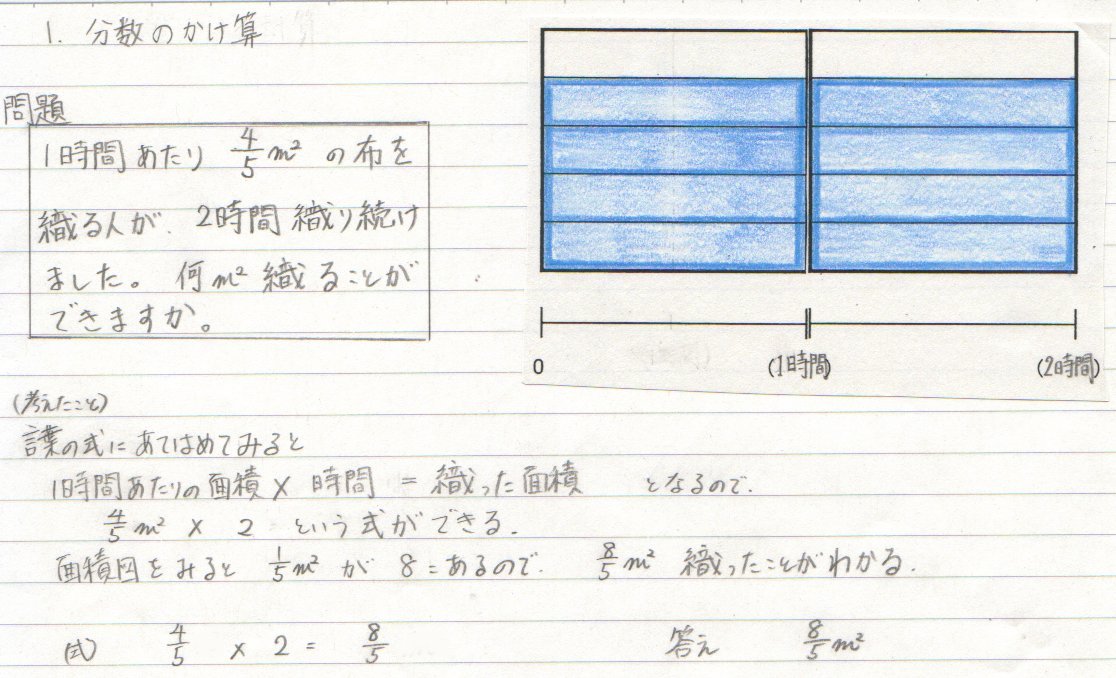 1. 分数のかけ算
問題
1時間あたり 4/5 m² の布を
織る人が、2時間織り続け
ました。何m² 織ることが
できますか。
0 (1時間) (2時間)
(考えたこと)
言葉の式にあてはめてみると
1時間あたりの面積 × 時間 = 織った面積 となるので、
4/5 m² × 2 という式ができる。
面積図をみると 1/5 m² が 8こあるので、 8/5 m² 織ったことがわかる。
(式) 4/5 × 2 = 8/5 答え 8/5 m²